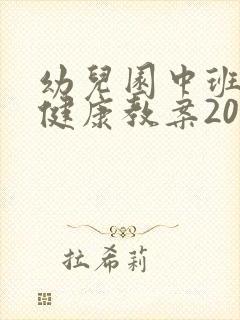 幼兒園中班
健康教案20
拉希莉